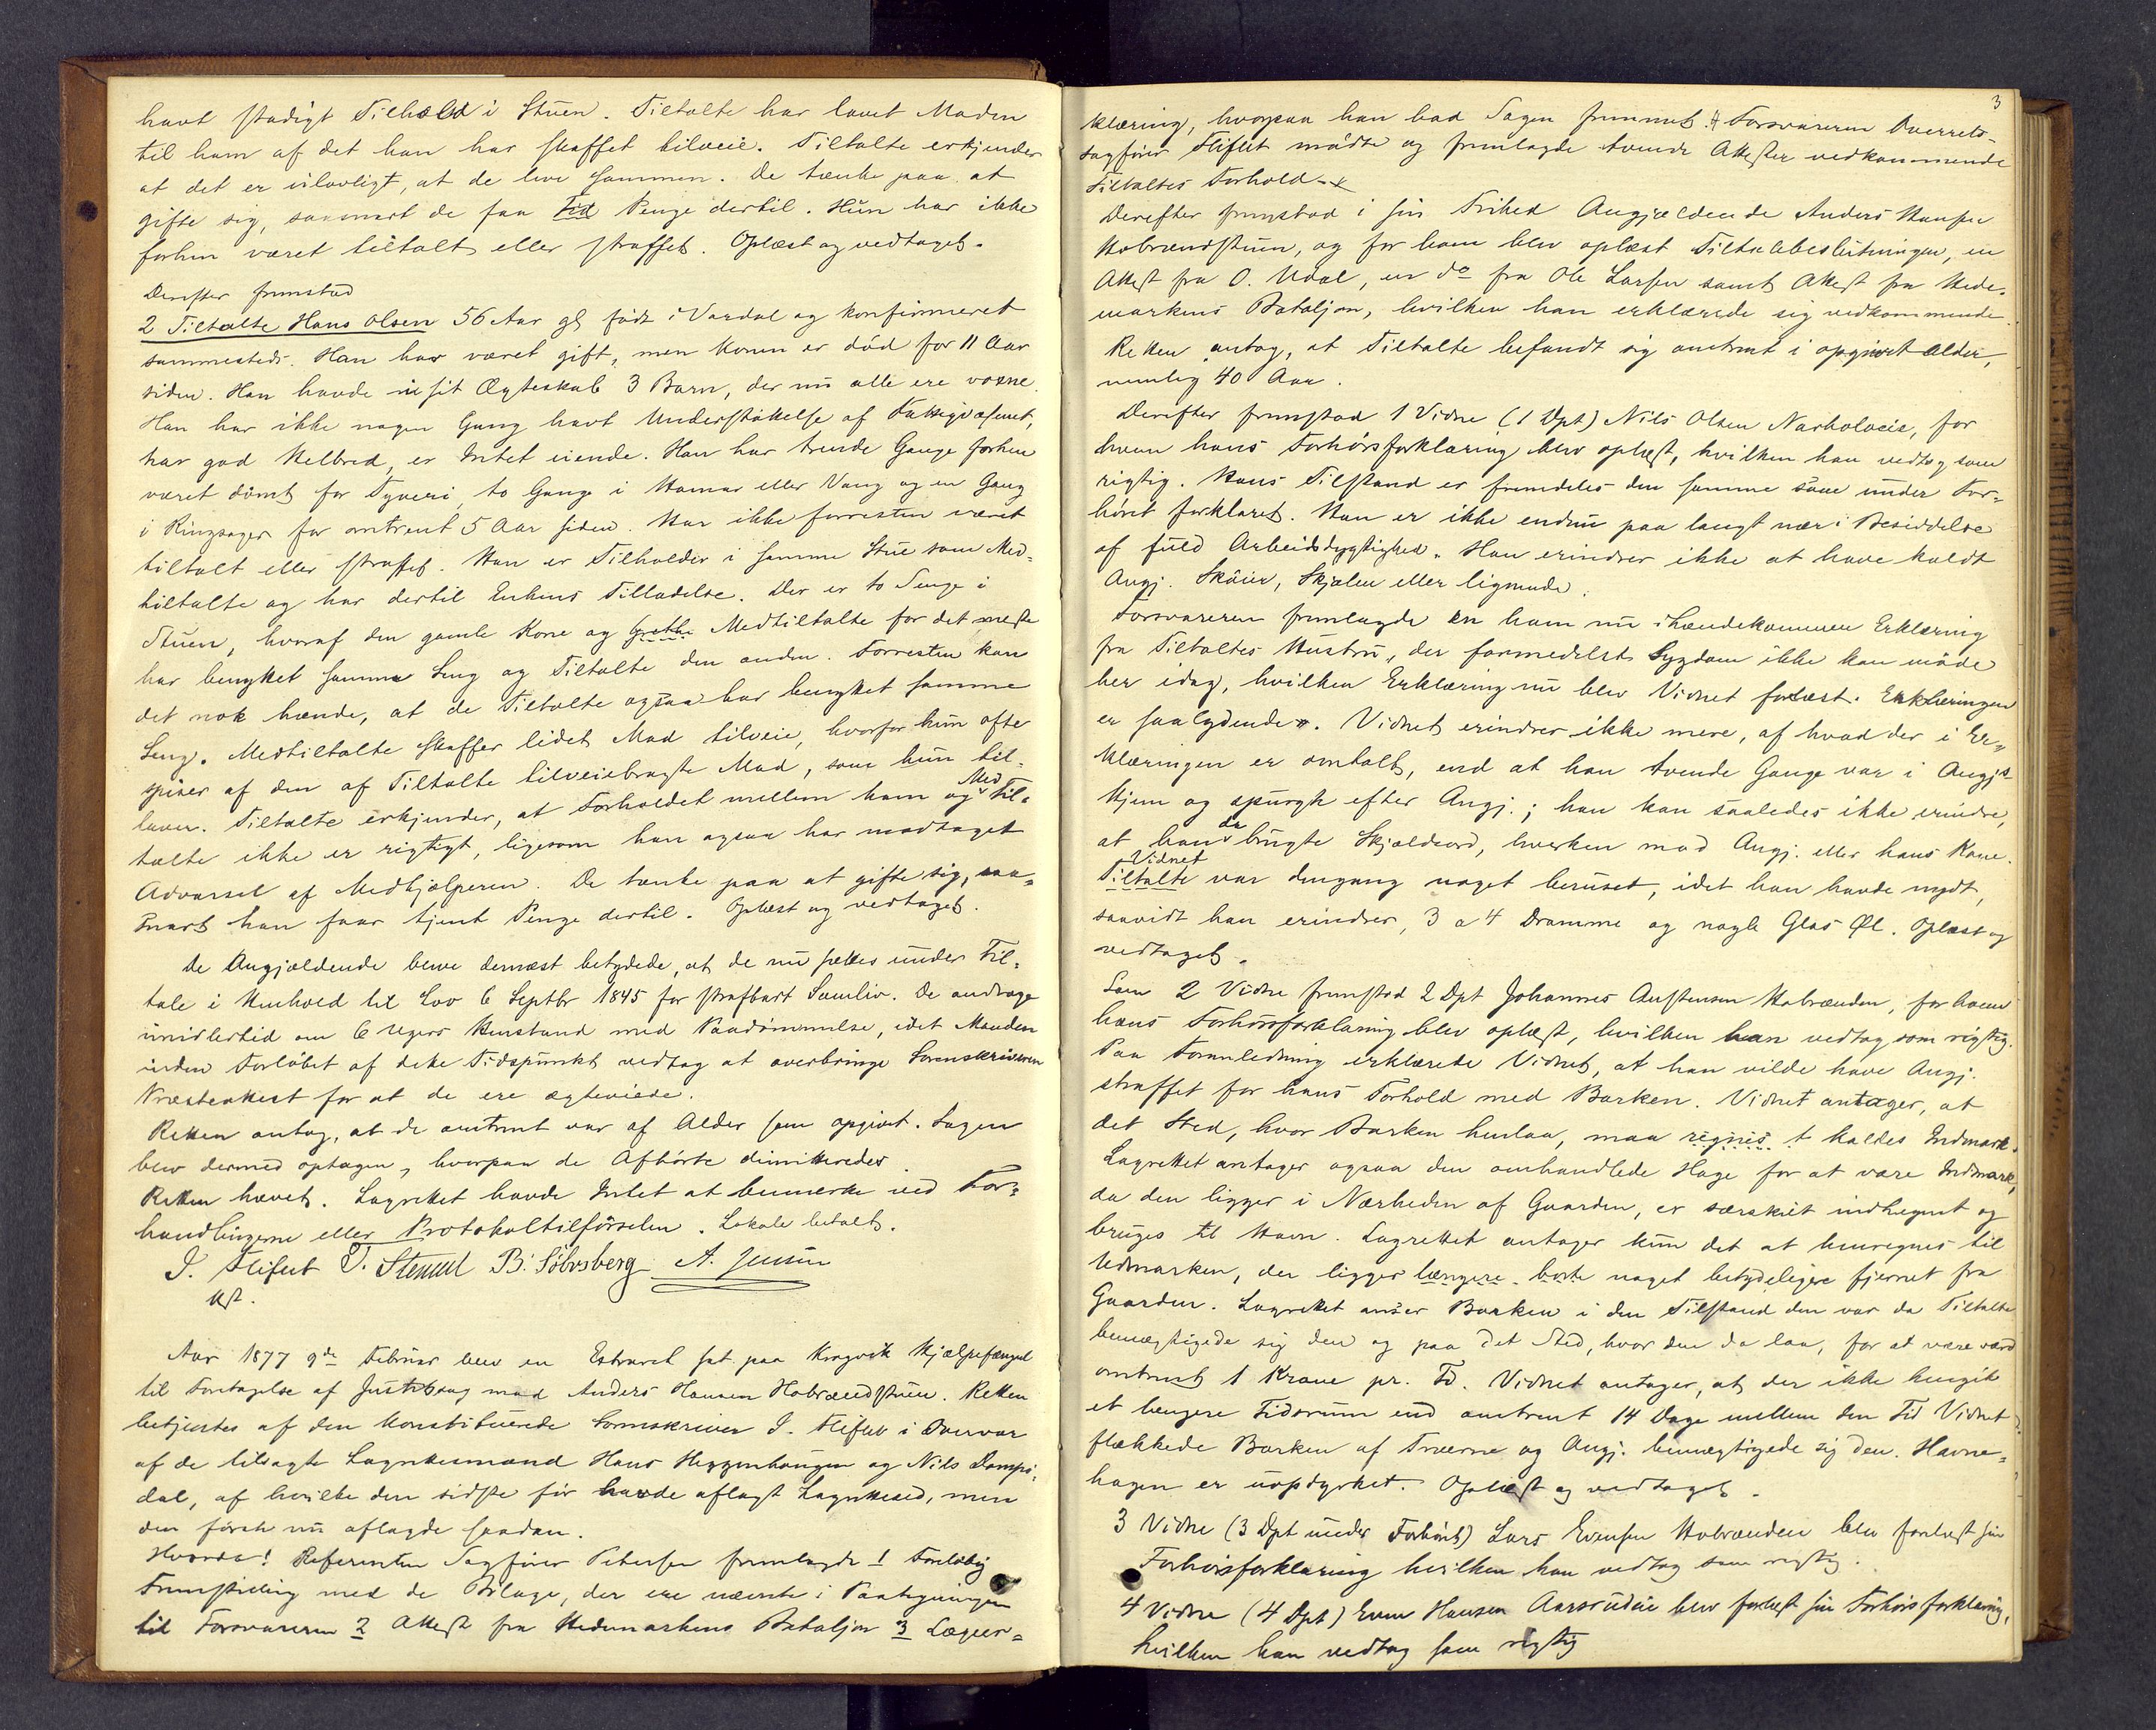 havt stadigt Tilhold i Stuen. Tiltalte har lavet Maden
til ham af det han har skaffet tilveie. Tiltalte erkjender
at det er ulovligt, at de leve sammen. De tænke paa at
gifte sig, saasnart de faa Tid Penge dertil. Hun har ikke
forhen været tiltalt eller straffet. Oplæst og vedtaget.
Derefter fremstod
2 Tiltalte Hans Olsen 56 Aar gl født i Vardal og konfirmeret
sammesteds. Han har været gift, men Konen er død for 11 Aar
siden. Han havde i sit Ægteskab 3 Barn, der nu alle ere voxne.
Han har ikke nogen Gang havt Understøttelse af Fattigvæsenet,
har god Helbred, er Intet eiende. Han har trende Gange forhen
været dømt for Tyveri, to Gange i Hamar eller Vang og en Gang
i Ringsager for omtrent 5 Aar siden. Har ikke forresten været
tiltalt eller straffet. Han er Tilholder i samme Stue som Med-
tiltalte og har dertil Enkens Tilladelse. Der er to Senge i
Stuen, hvoraf den gamle Kone og Grethe Medtiltalte for det meste
har benyttet samme Seng og Tiltalte den anden. Forresten kan
det nok hænde, at de Tiltalte ogsaa har benyttet samme
Seng. Medtiltalte skaffer lidet Mad tilveie, hvorfor hun ofte
spiser af den af Tiltalte tilveiebragte Mad, som hun til-
laver. Tiltalte erkjender, at Forholdet mellem ham og Med Til-
talte ikke er rigtigt, ligesom han ogsaa har modtaget
Advarsel af Medhjælperen. De tænke paa at gifte sig, saa-
snart han faar tjent Penge dertil. Oplæst og vedtaget.
De Angjældende bleve dernæst betydede, at de nu sættes under Til-
tale i Henhold til Lov 6 Septbr 1845 for strafbart Samliv. De androge
imidlertid om 6 Ugers Henstand med Paadømmelse, idet Manden
inden Forløbet af dette Tidspunkt vedtog at overbringe Sorenskriveren
Præsteattest for at de ere ægteviede.
Retten antog, at de omtrent var af Alder som opgivet. Sagen
blev dermed optagen, hvorpaa de Afhørte dimitteredes.
Retten hævet. Lagrettet havde Intet at bemerke ved For-
handlingerne eller Protokoltilførselen. Lokale betalt.
J. Fliflet T. Stensul B. Sølvsberg A. Jensen
kst.
Aar 1877 9de Februar blev en Extraret sat paa Kragvik Hjælpefængsel
til Foretagelse af Justitssag mod Anders Hansen Habrændstuen. Retten
betjentes af den konstituerede Sorenskriver J. Fliflet i Overvær
af de tilsagte Lagrettesmænd Hans Heggenhaugen og Nils Damps-
dal, af hvilke den sidste før havde aflagt Lagretteseed, men
den første nu aflagde saadan.
Hvorda! Referenten Sagfører Petersen fremlagde 1 Foreløbig
Fremstilling med de Bilage, der ere nævnte i Paategningen
til Forsvareren 2 Attest fra Hedemarkens Bataljon 3 Lægeer-
3
klæring, hvorpaa han bad Sagen fremmet. # Forsvareren Overrets-
sagfører Fliflet mødte og fremlagde tvende Attester vedkommende
Tiltaltes Forhold.
Derefter fremstod i sin Frihed Angjældende Anders Hansen
Habrændstuen, og for ham blev oplæst Tiltalebeslutningen, en
Attest fra O. Udal, en do fra Ole Larsen samt Attest fra Hede-
markens Bataljon, hvilken han erklærede sig vedkommende.
Retten antog, at Tiltalte befandt sig omtrent i opgivet Alder,
nemlig 40 Aar.
Derefter fremstod 1 Vidne (1 Dpt) Nils Olsen Narholoeie, for
hvem hans Forhørsforklaring blev oplæst, hvilken han vedtog som
rigtig. Hans Tilstand er fremdeles den samme som under For-
høret forklaret. Han er ikke endnu paa langt nær i Besiddelse
af fuld Arbeidsdygtighed. Han erindrer ikke at have kaldt
Angj. Skøier, Skjælen eller lignende.
Forsvareren fremlagde en ham nu ihændekommen Erklæring
fra Tiltaltes Hustru, der formedelst Sygdom ikke kan møde
her idag, hvilken Erklæring nu blev Vidnet forelæst. Erklæringen
er saalydende #. Vidnet erindrer ikke mere, af hvad der i Er-
klæringen er omtalt, end at han tvende Gange var i Angjs
Hjem og spurgte efter Angj.; han kan saaledes ikke erindre,
at han da brugte Skjældsord, hverken mod Angj. eller hans Kone.
Vidnet
Tiltalte var dengang noget beruset, idet han havde nydt,
saavidt han erindrer, 3 a 4 Dramme og nogle Glas Øl. Oplæst og
vedtaget.
Som 2 Vidne fremstod 2 Dpt Johannes Austensen Habrænden, for hvem
hans Forhørsforklaring blev oplæst, hvilken han vedtog som rigtig.
Paa Foranledning erklærede Vidnet, at han vilde have Angj.
straffet for hans Forhold med Barken. Vidnet antager, at
det Sted, hvor Barken henlaa, maa regnes t kaldes Indmark.
Lagrettet antager ogsaa den omhandlede Hage for at være Indmark,
da den ligger i Nærheden af Gaarden, er særskilt indhegnet og
bruges til Havn. Lagrettet antager kun det at henregnes til
Udmarken, der ligger længere borte noget betydeligere fjernet fra
Gaarden. Lagrettet anser Barken i den Tilstand den var da Tiltalte
bemægtigede sig den og paa det Sted, hvor den da laa, for at være værd
omtrent 1 Krone pr. Td. Vidnet antager, at der ikke hengik
et længere Tidsrum end omtrent 14 Dage mellem den Tid Vidnet
flækkede Barken af Træerne og Angj. bemægtigede sig den. Havne-
hagen er uopdyrket. Oplæst og vedtaget.
3 Vidne (3 Dpt under Forhøret) Lars Evensen Habrænden blev forelæst sin
Forhørsforklaring hvilken han vedtog som rigtig.
4 Vidne (4 Dpt) Even Hansen Aarsrudeie blev forelæst sin Forhørsforklaring,
hvilken han vedtog som rigtig